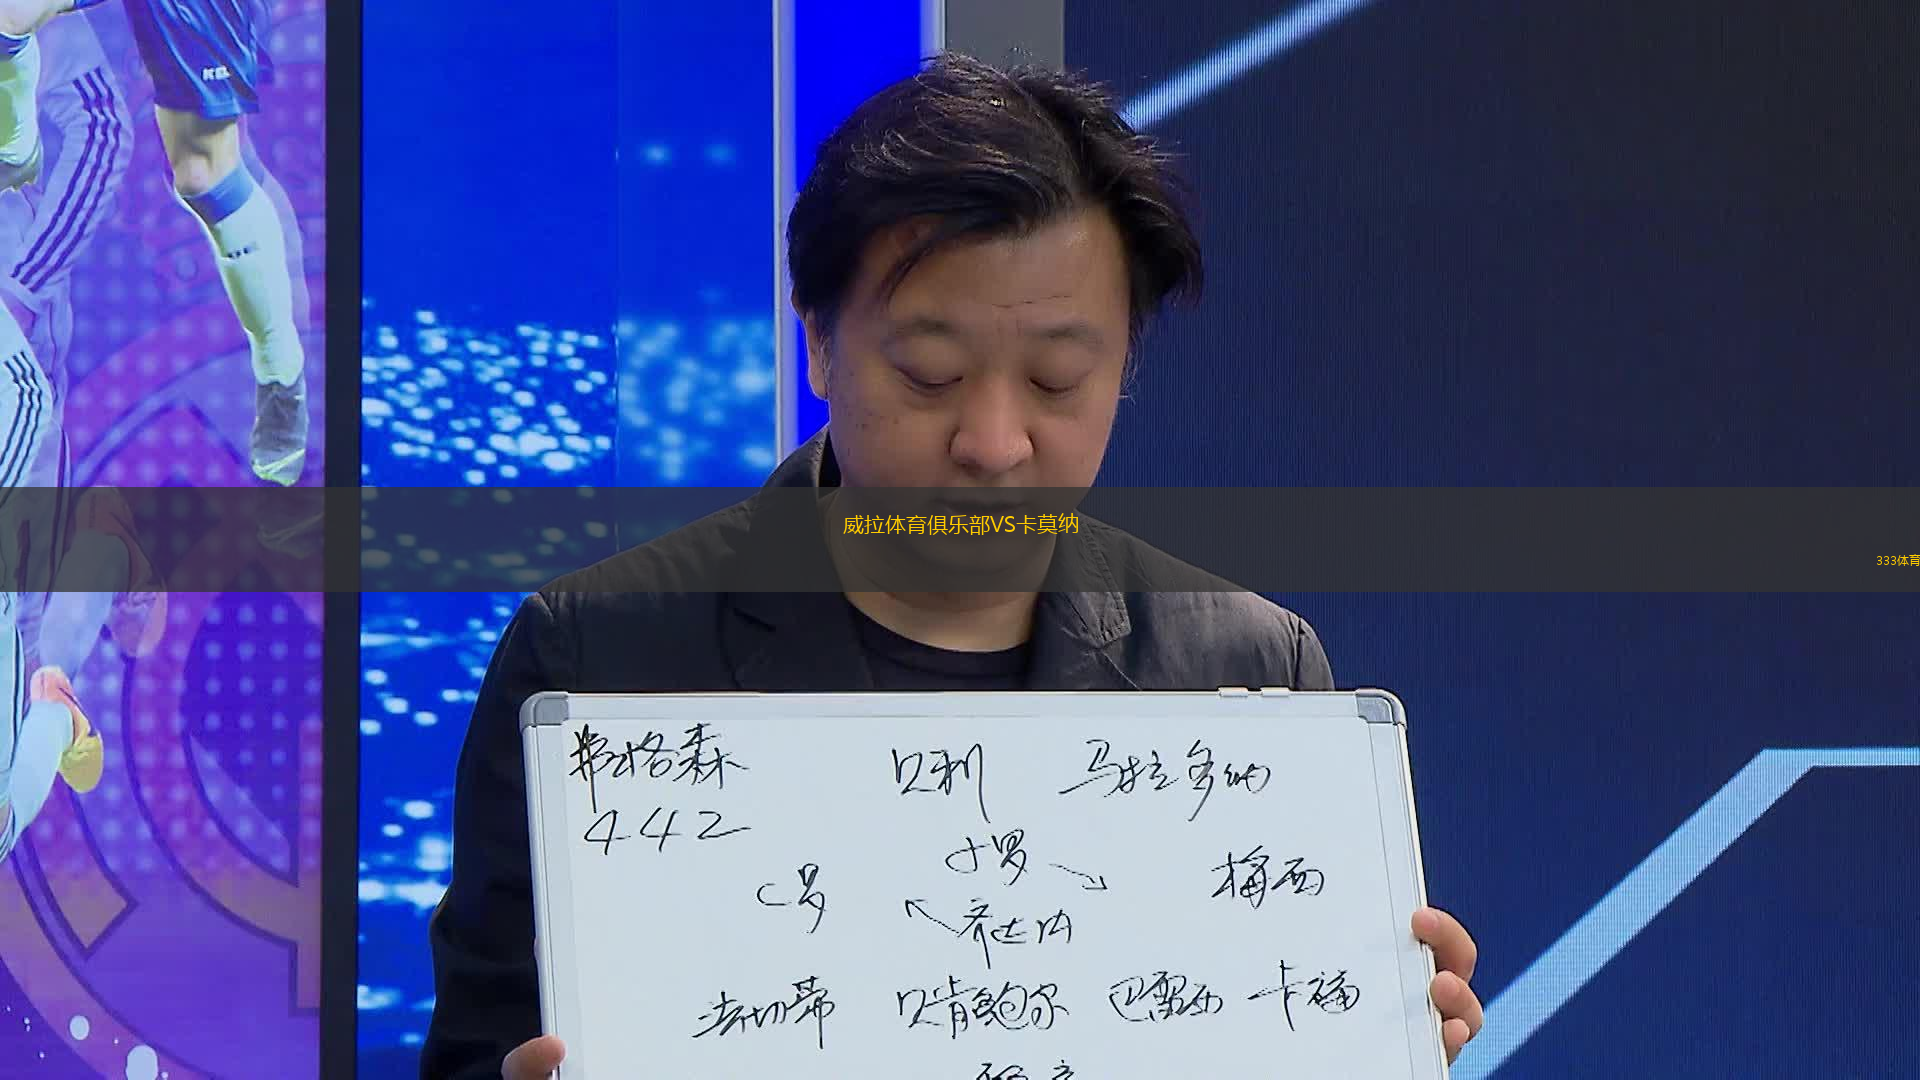 KEL
威拉体育俱乐部VS卡莫纳
333体育
弗格森 贝利 马拉多纳
442
小罗
C罗 梅西
齐达内
法切蒂 贝肯鲍尔 巴雷西 卡福